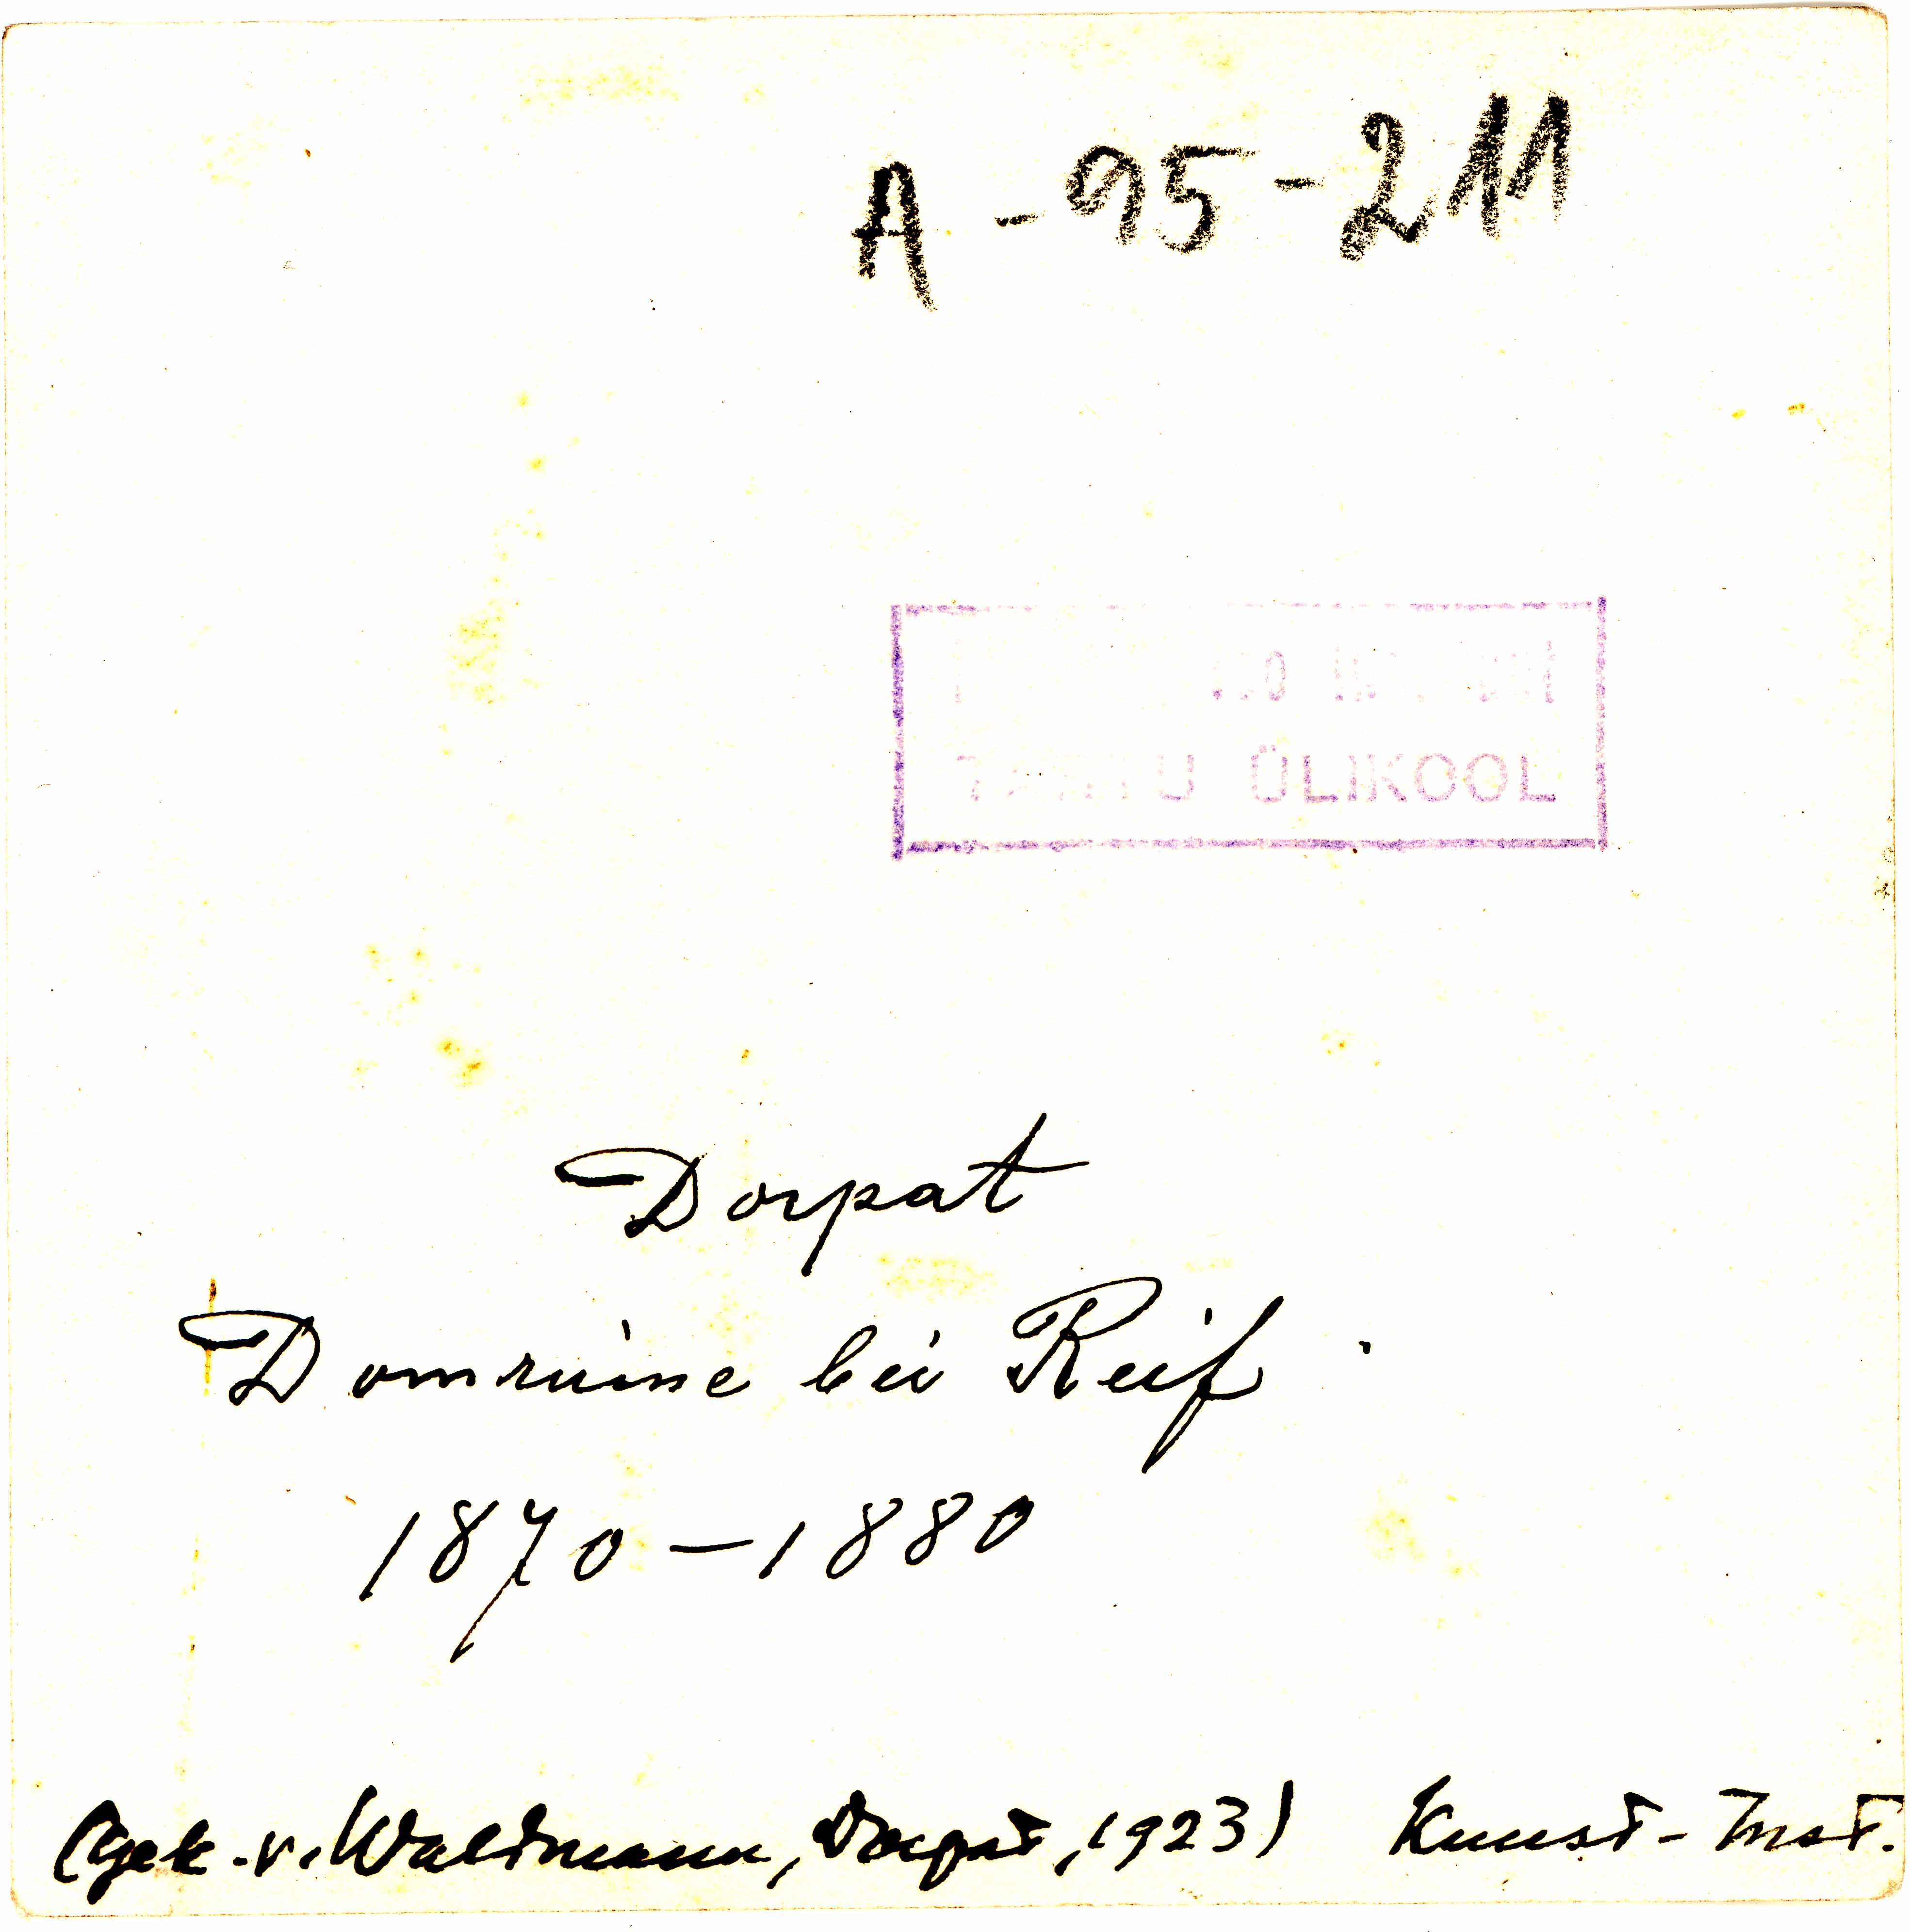 A-95-211
TARTU ÜLIKOOL
Dorpat
Domruine bei Reif
1870-1880
(Gek. v. Waldmann, Dorpat, 1923) Kunst-Inst.